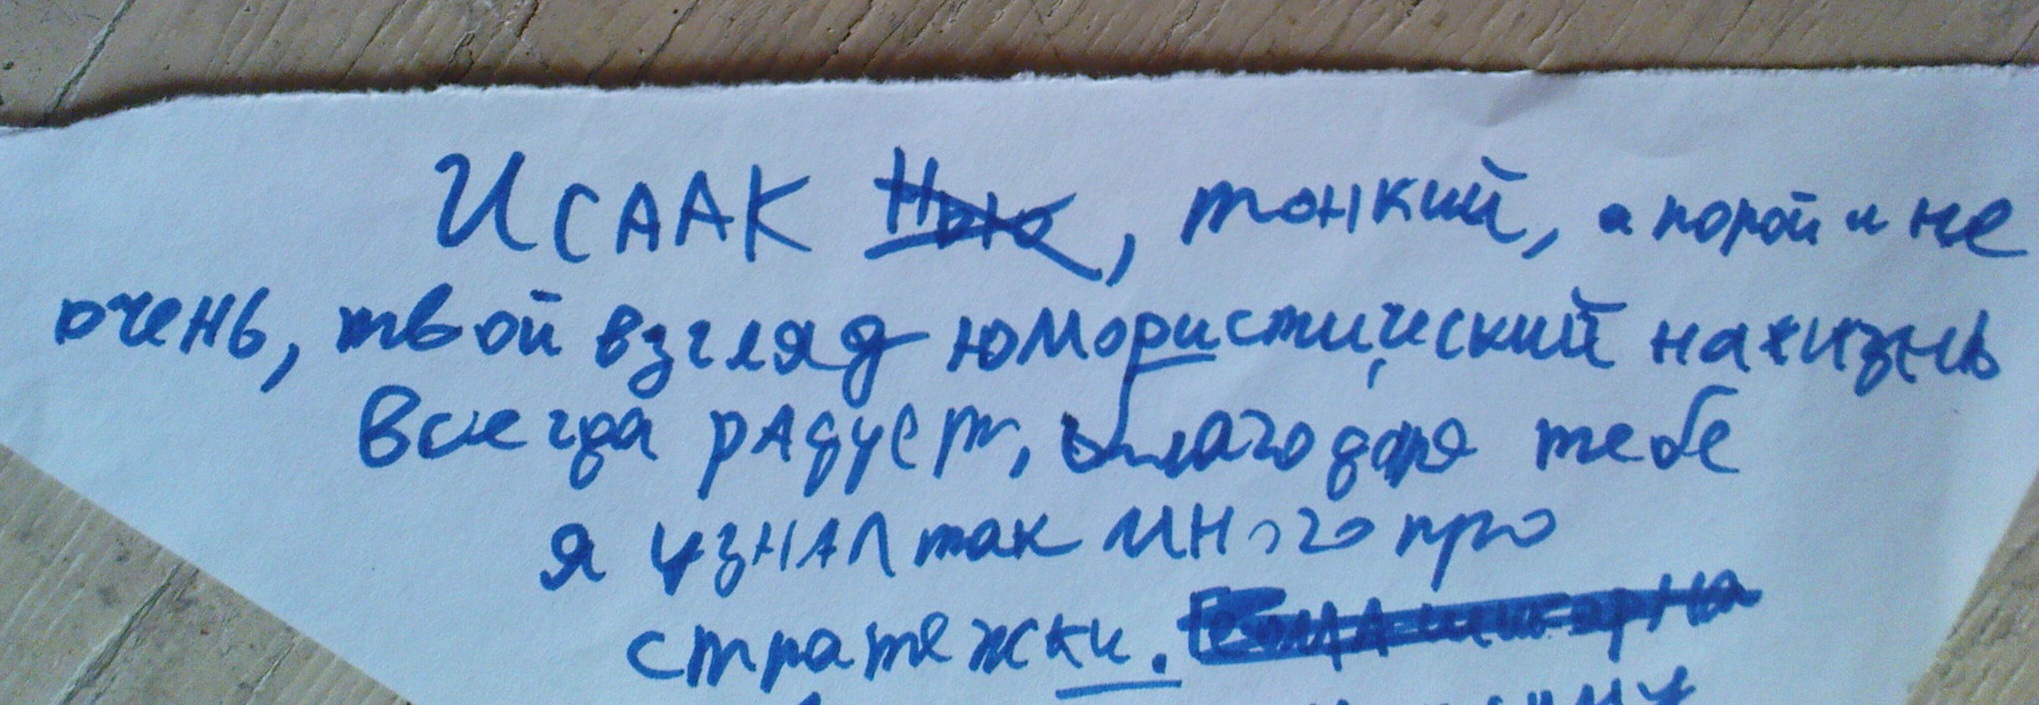 Исаак Нью, тонкий, а порой и не
очень, твой взгляд юмористический на жизнь
всегда радует, благодаря тебе
я узнал так много про
стратежки.